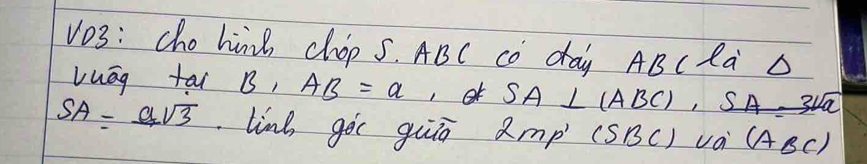 VD3: Cho hình chóp S.ABC có đáy ABC là Δ
vuôg tại B, AB = a, SA ⊥ (ABC), SA = 3√a
SA = a√3. tính góc giữa 2mp' (SBC) và (ABC)